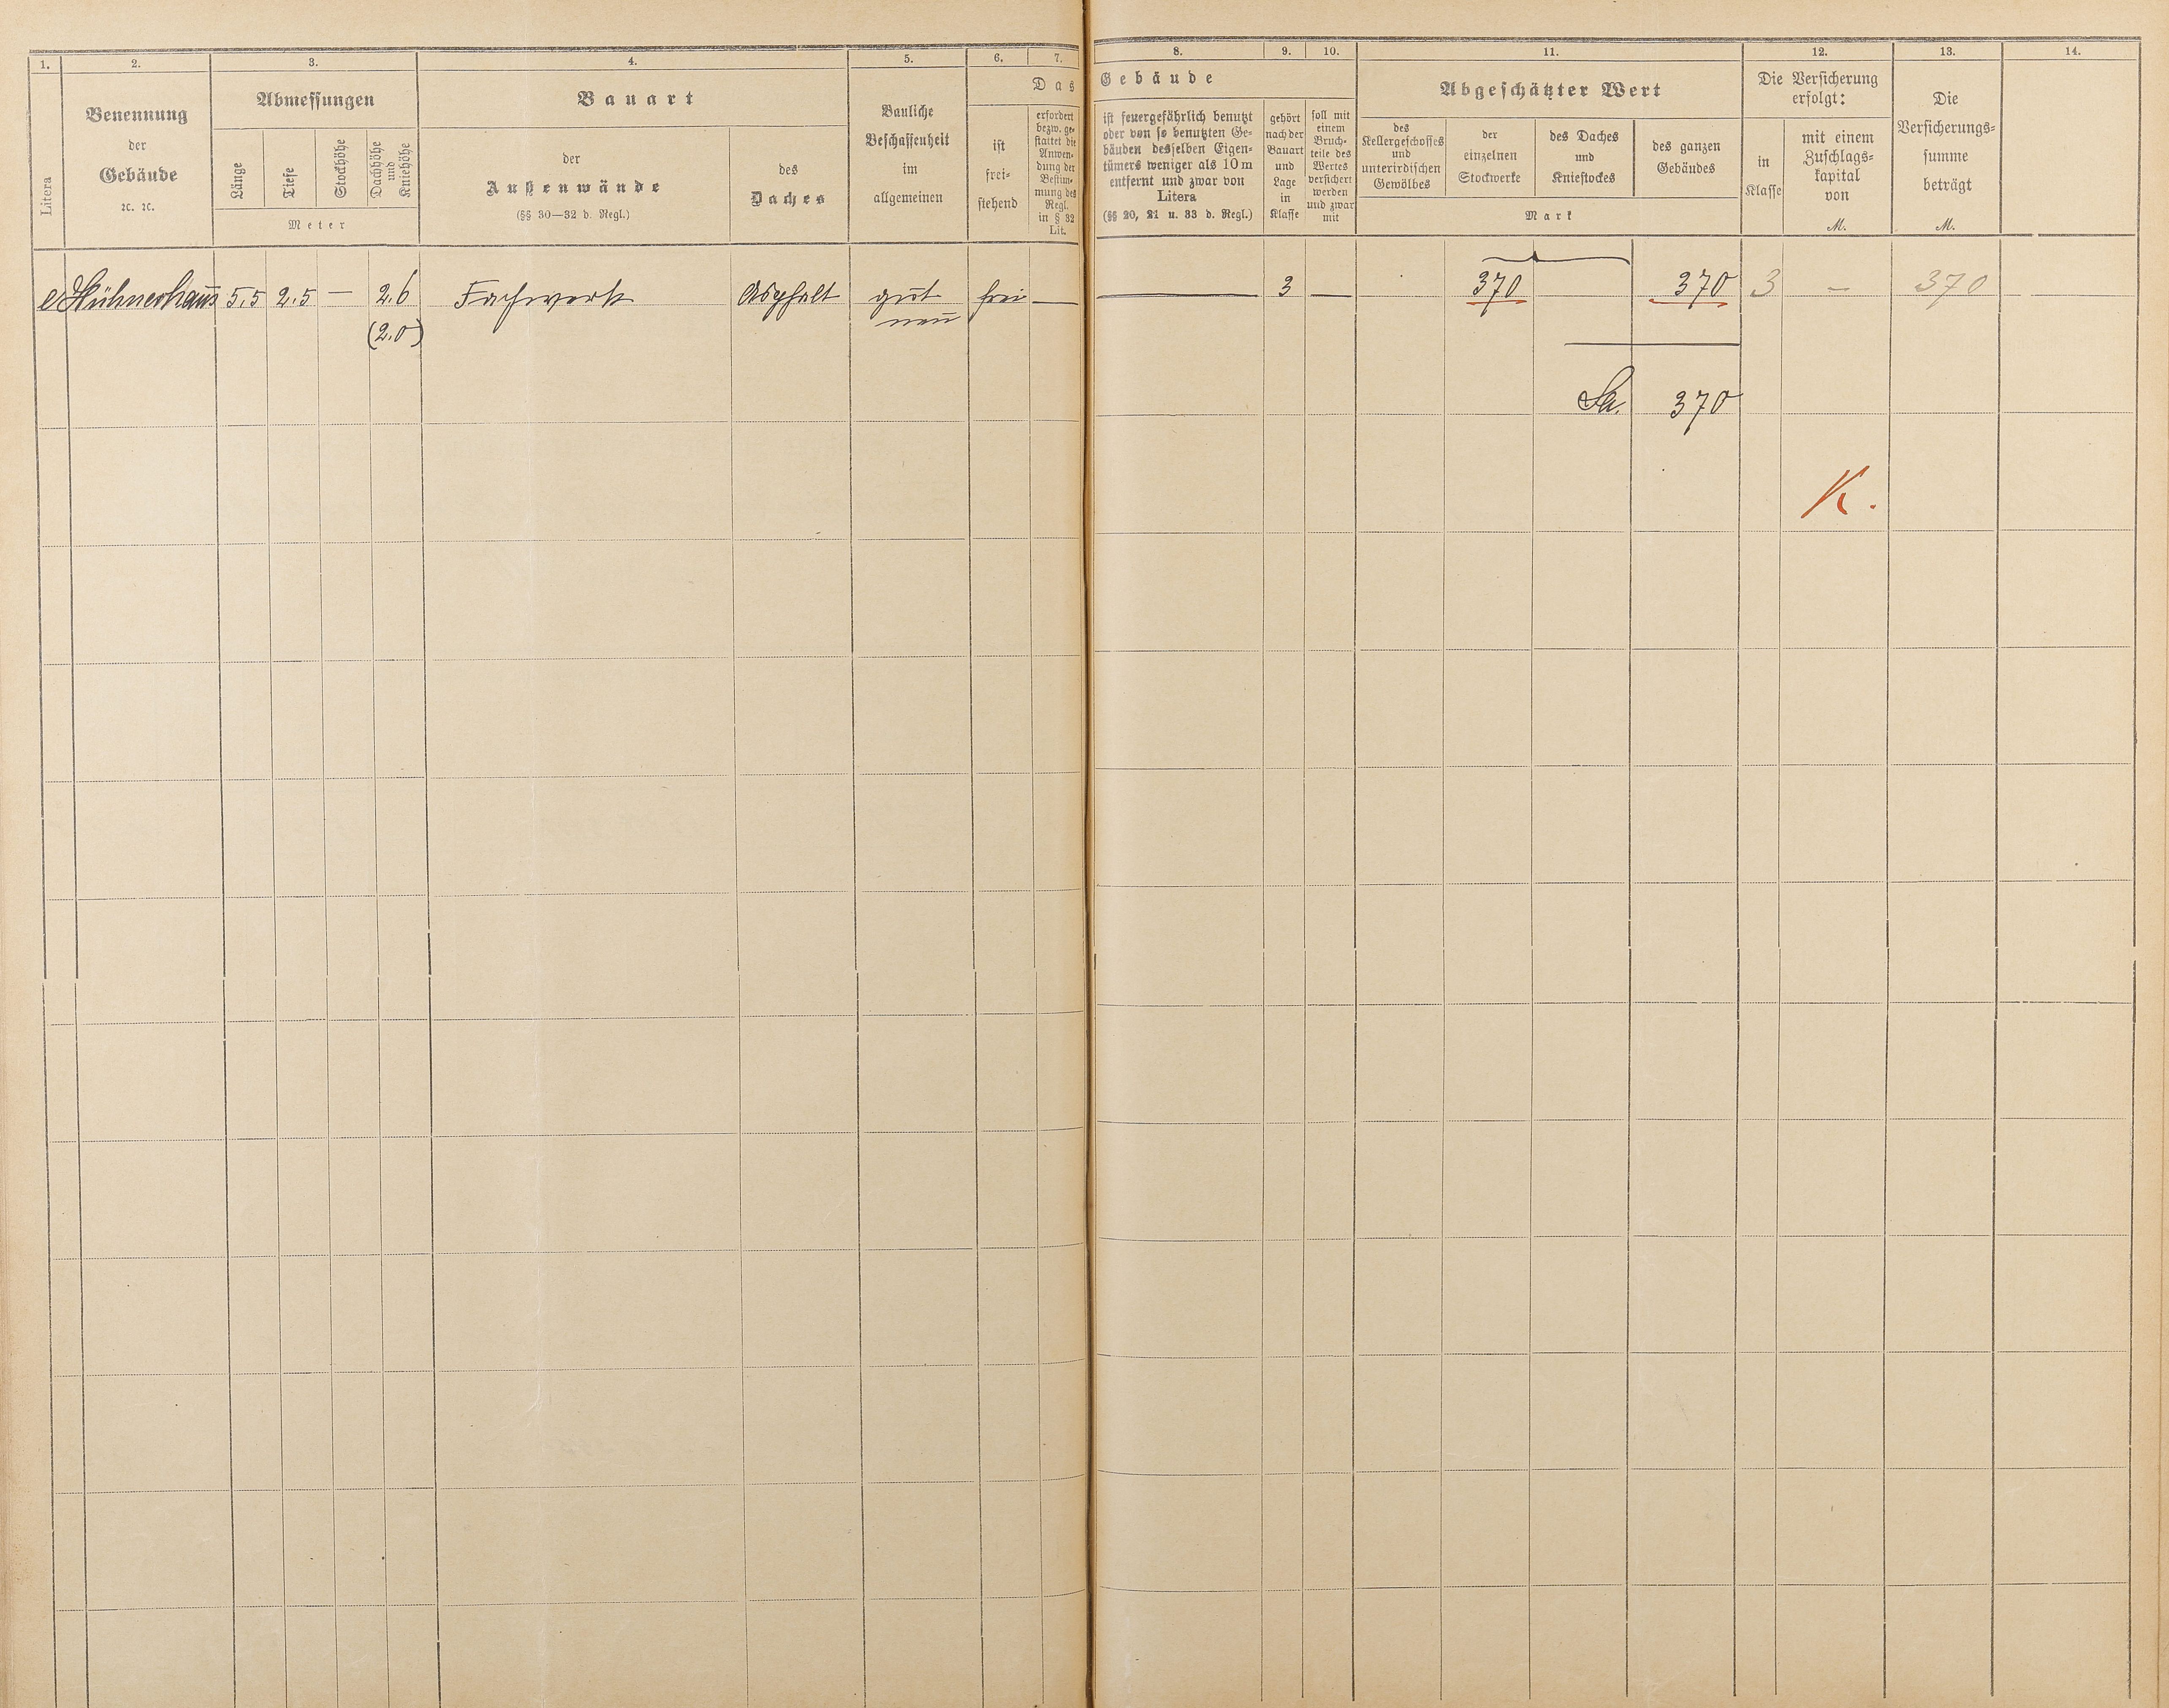 1. 2. 3. 4. 5. 6. 7. 8. 9. 10. 11. 12. 13. 14.
Litera
Benennung
der
Gebäude
ꝛc. ꝛc.
Abmessungen
Länge
Tiefe
Stockhöhe
Dachhöhe
und
Kniehöhe
Meter
Bauart
der
Außenwände
(§§ 30—32 d. Regl.)
des
Daches
Bauliche
Beschaffenheit
im
allgemeinen
Das Gebäude
ist
frei-
stehend
erfordert
bezw. ge-
stattet die
Anwen-
dung der
Bestim-
mung des
Regl.
in § 32
Lit.
ist feuergefährlich benutzt
oder von so benutzten Ge-
bäuden desselben Eigen-
tümers weniger als 10 m
entfernt und zwar von
Litera
(§§ 20, 21 u. 33 d. Regl.)
gehört
nach der
Bauart
und
Lage
in
Klasse
soll mit
einem
Bruch-
teile des
Wertes
versichert
werden
und zwar
mit
Abgeschätzter Wert
des
Kellergeschosses
und
unterirdischen
Gewölbes
der
einzelnen
Stockwerke
des Daches
und
Kniestockes
des ganzen
Gebäudes
Mark
Die Versicherung
erfolgt:
in
Klasse
mit einem
Zuschlags-
kapital
von
M.
Die
Versicherungs-
summe
beträgt
M.
e Hühnerhaus 5.5 2.5 — 2.6 Fachwerk Asphalt gut frei — — 3 — 370 370 3 — 370
(2.0) neu
Sa. 370
K.